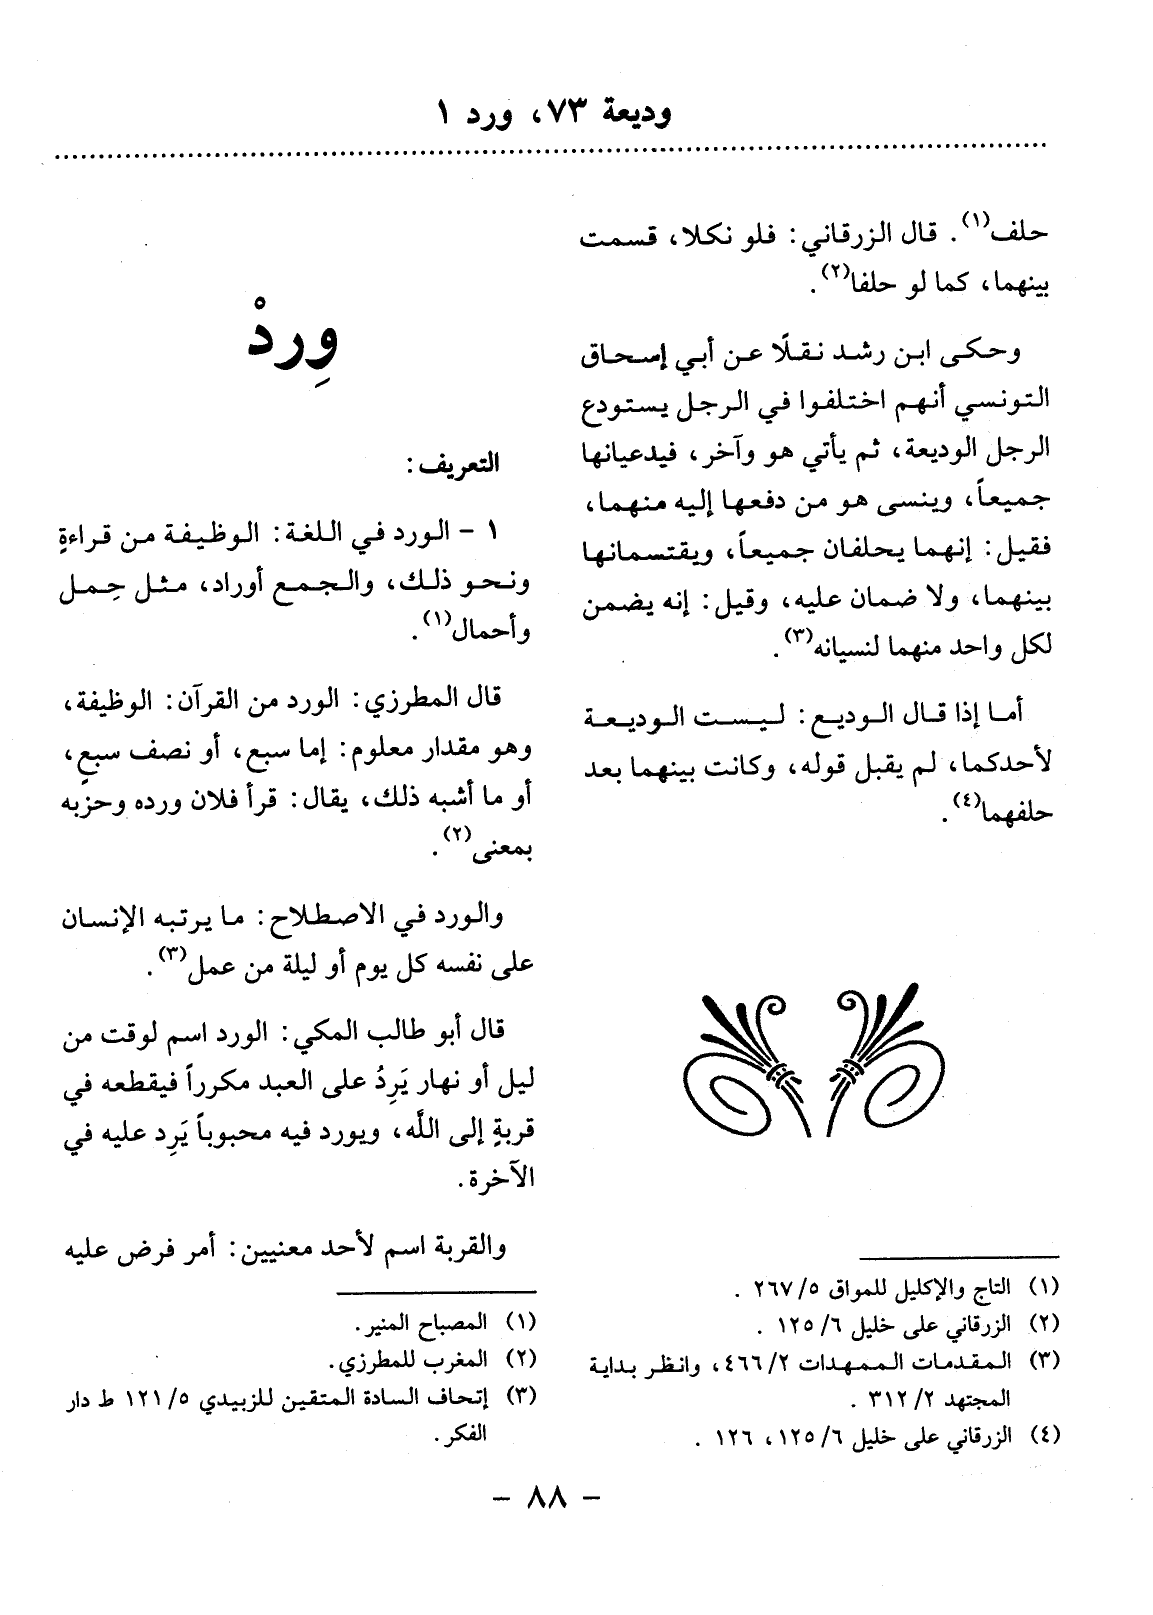 وديعة ٧٣، ورد ١
حلف(١). قال الزرقاني: فلو نكلا، قسمت
بينهما، كما لو حلفا(٢).
وحكى ابن رشد نقلًا عن أبي إسحاق
التونسي أنهم اختلفوا في الرجل يستودع
الرجل الوديعة، ثم يأتي هو وآخر، فيدعيانها
جميعاً، وينسى هو من دفعها إليه منهما،
فقيل: إنهما يحلفان جميعاً، ويقتسمانها
بينهما، ولا ضمان عليه، وقيل: إنه يضمن
لكل واحد منهما لنسيانه(٣).
أما إذا قال الوديع: ليست الوديعة
لأحدكما، لم يقبل قوله، وكانت بينهما بعد
حلفهما(٤).
(١) التاج والإكليل للمواق ٥/ ٢٦٧ .
(٢) الزرقاني على خليل ٦/ ١٢٥ .
(٣) المقدمات الممهدات ٢/ ٤٦٦، وانظر بداية
المجتهد ٢/ ٣١٢ .
(٤) الزرقاني على خليل ٦/ ١٢٥، ١٢٦ .
وِردْ
التعريف:
١ - الورد في اللغة: الوظيفة من قراءةٍ
ونحو ذلك، والجمع أوراد، مثل حِمل
وأحمال(١).
قال المطرزي: الورد من القرآن: الوظيفة،
وهو مقدار معلوم: إما سبع، أو نصف سبعٍ،
أو ما أشبه ذلك، يقال: قرأ فلان ورده وحزبه
بمعنى(٢).
والورد في الاصطلاح: ما يرتبه الإنسان
على نفسه كل يوم أو ليلة من عمل(٣).
قال أبو طالب المكي: الورد اسم لوقت من
ليل أو نهار يَرِدُ على العبد مكرراً فيقطعه في
قربةٍ إلى اللَّه، ويورد فيه محبوباً يَرِد عليه في
الآخرة.
والقربة اسم لأحد معنيين: أمر فرض عليه
(١) المصباح المنير.
(٢) المغرب للمطرزي.
(٣) إتحاف السادة المتقين للزبيدي ٥/ ١٢١ ط دار
الفكر.
- ٨٨ -